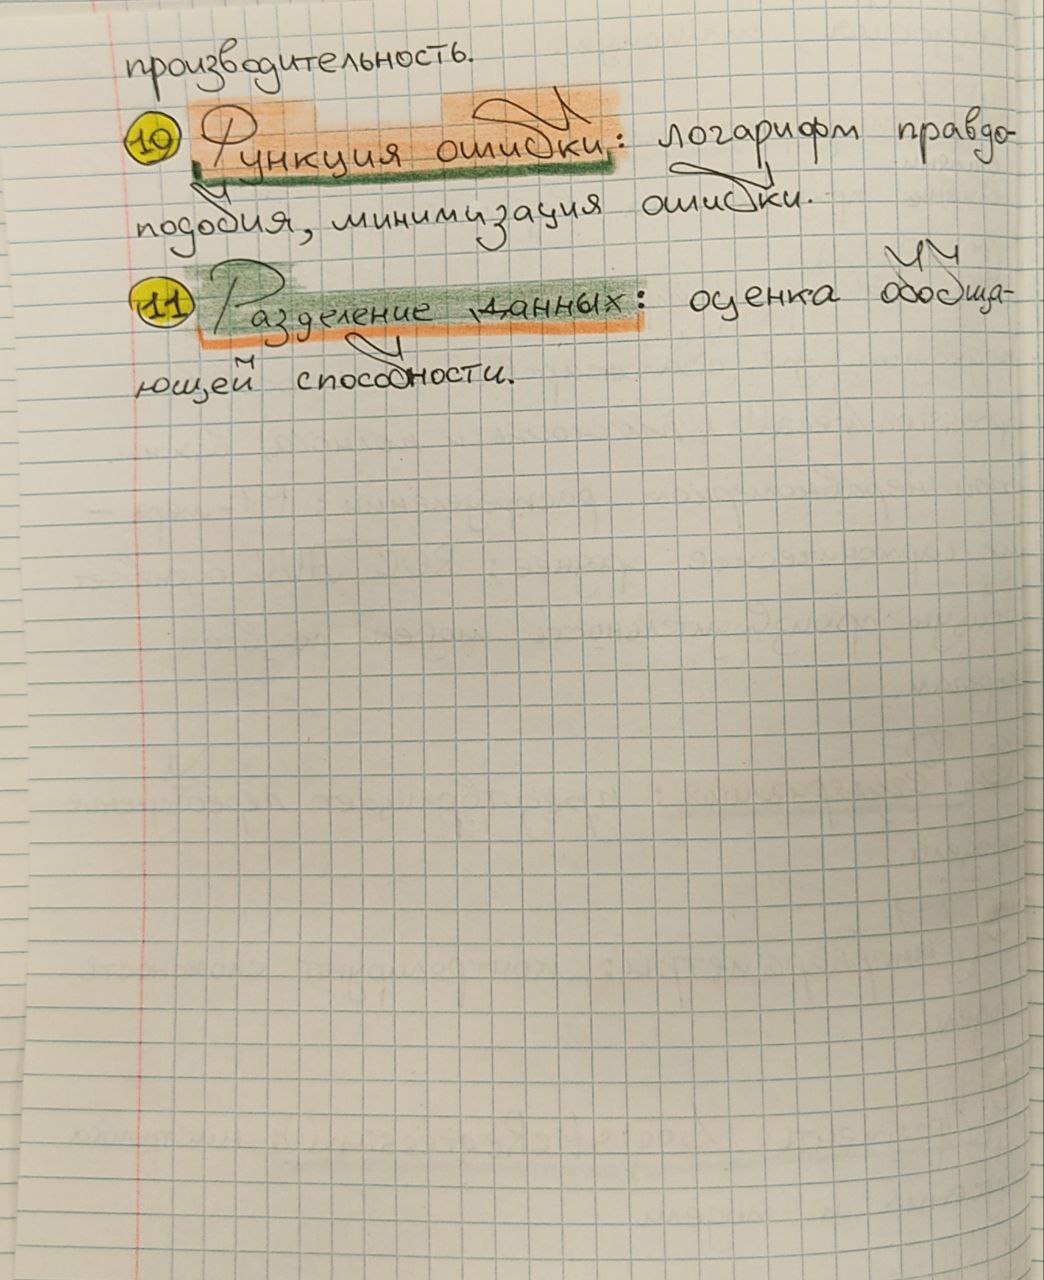 производительность.
10 Функция ошибки: логарифм правдо-
подобия, минимизация ошибки.
11 Разделение данных: оценка обобща-
ющей способности.